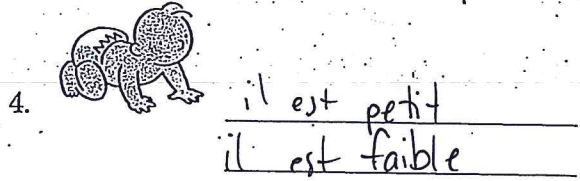 4. il est petit
il est faible